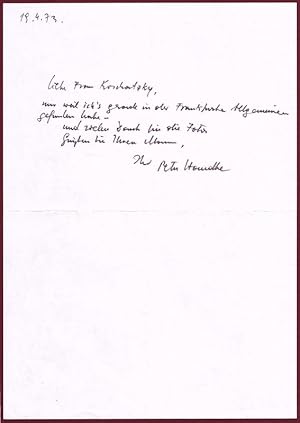 19.4.73.
Liebe Frau Koschatzky,
nur weil ich's gerade in der Frankfurter Allgemeinen
gefunden habe –
und vielen Dank für die Fotos
Grüßen Sie Ihren Mann,
Ihr Peter Handke